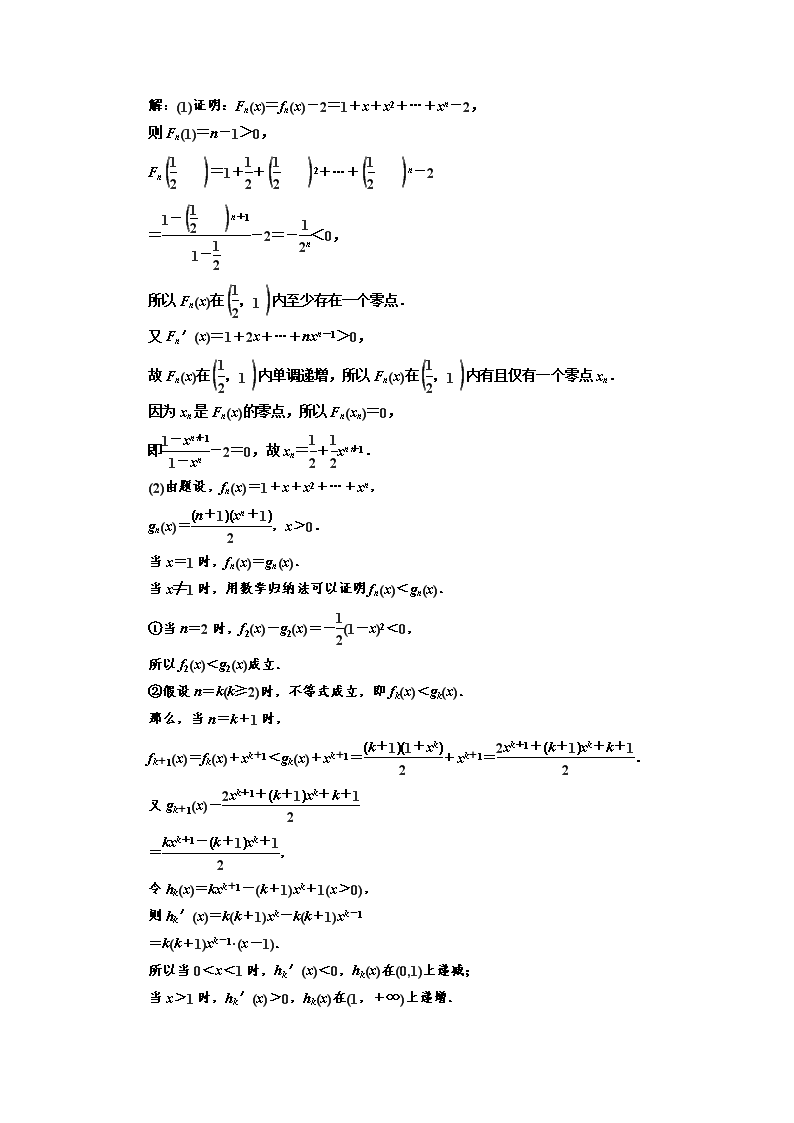 解：(1)证明：Fₙ(x)＝fₙ(x)－2＝1＋x＋x²＋…＋xⁿ－2，
则 Fₙ(1)＝n－1＞0，
Fₙ(1/2)＝1＋1/2＋(1/2)2＋…＋(1/2)n－2
＝(1－(1/2)n＋1)/(1－1/2)－2＝－1/2ⁿ＜0，
所以 Fₙ(x)在(1/2，1)内至少存在一个零点．
又 Fₙ′(x)＝1＋2x＋…＋nxⁿ⁻¹＞0，
故 Fₙ(x)在(1/2，1)内单调递增，所以 Fₙ(x)在(1/2，1)内有且仅有一个零点 xₙ．
因为 xₙ 是 Fₙ(x)的零点，所以 Fₙ(xₙ)＝0，
即(1－xⁿ⁺¹)/(1－xₙ)－2＝0，故 xₙ＝1/2＋1/2xⁿ⁺¹．
(2)由题设，fₙ(x)＝1＋x＋x²＋…＋xⁿ，
gₙ(x)＝(n＋1)(xⁿ＋1)/2，x＞0．
当 x＝1 时，fₙ(x)＝gₙ(x)．
当 x≠1 时，用数学归纳法可以证明 fₙ(x)＜gₙ(x)．
①当 n＝2 时，f₂(x)－g₂(x)＝－1/2(1－x)²＜0，
所以 f₂(x)＜g₂(x)成立．
②假设 n＝k(k≥2)时，不等式成立，即 fₖ(x)＜gₖ(x)．
那么，当 n＝k＋1 时，
fₖ₊₁(x)＝fₖ(x)＋xᵏ⁺¹＜gₖ(x)＋xᵏ⁺¹＝(k＋1)(1＋xᵏ)/2＋xᵏ⁺¹＝(2xᵏ⁺¹＋(k＋1)xᵏ＋k＋1)/2．
又 gₖ₊₁(x)－(2xᵏ⁺¹＋(k＋1)xᵏ＋k＋1)/2
＝(kxᵏ⁺¹－(k＋1)xᵏ＋1)/2，
令 hₖ(x)＝kxᵏ⁺¹－(k＋1)xᵏ＋1(x＞0)，
则 hₖ′(x)＝k(k＋1)xᵏ－k(k＋1)xᵏ⁻¹
＝k(k＋1)xᵏ⁻¹·(x－1)．
所以当 0＜x＜1 时，hₖ′(x)＜0，hₖ(x)在(0,1)上递减；
当 x＞1 时，hₖ′(x)＞0，hₖ(x)在(1，＋∞)上递增．